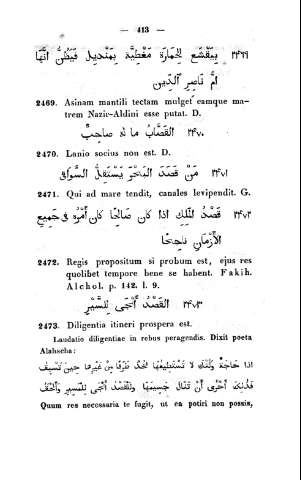 — 413 —
٢٤٦٩ يقشع الحمارة مغطية بمنديل فيظن انّها
ام ناصر الدين
2469. Asinam mantili tectam mulget eamque ma-
trem Nazir-Aldini esse putat. D.
٢٤٧٠ القصّاب ما له صاحب
2470. Lanio socius non est. D.
٢٤٧١ من قصد البحر يستقل السواقى
2471. Qui ad mare tendit, canales levipendit. G.
٢٤٧٢ قصد الملك اذا كان صالحا كان امره فى جميع
الأزمان ناجحا
2472. Regis propositum si probum est, ejus res
quolibet tempore bene se habent. Fakih.
Alchol. p. 142. l. 9.
٢٤٧٣ القصد أنجى للسير
2473. Diligentia itineri prospera est.
Laudatio diligentiae in rebus peragendis. Dixit poeta
Alahscha:
اذا حاجة ولّتك لا تستطيعها فخذ طرفا من غيرها حين تسبق
فذلك أحرى أن تنال جسيمها وللقصد أنجى للمسير وألحق
Quum res necessaria te fugit, ut ea potiri non possis,